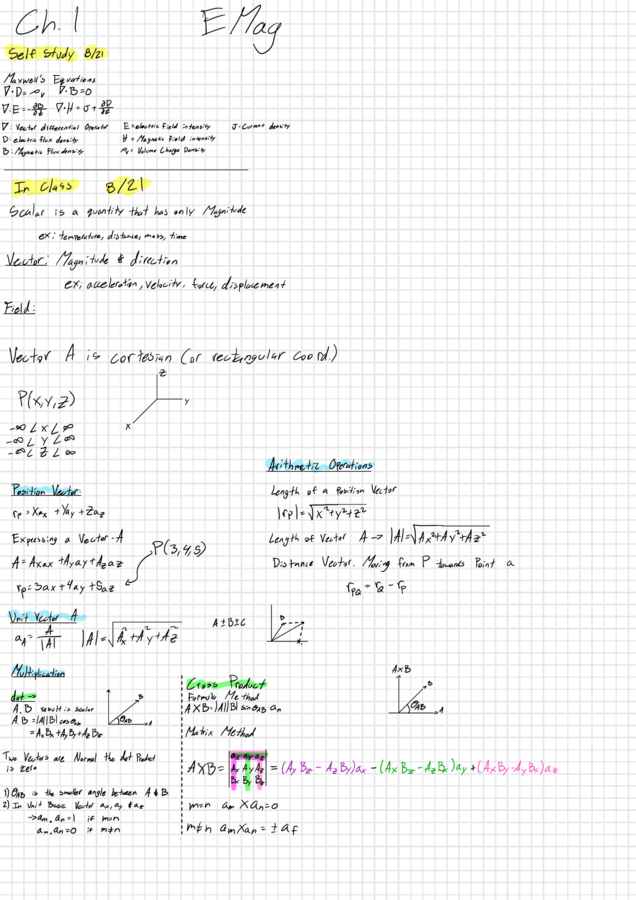 Ch. 1 EMag
Self Study 8/21
Maxwell's Equations
∇·D=ρv ∇·B=0
∇·E=-∂D/∂t ∇·H=J+∂D/∂t
∇: Vector differential Operator E=electric field intensity J: Current density
D: electric flux density H= Magnetic Field intensity
B: Magnetic Flux density ρv= Volume Charge Density
In Class 8/21
Scalar is a quantity that has only Magnitude
ex: temperature, distance, mass, time
Vector: Magnitude & direction
ex, acceleration, velocity, force, displacement
Field:
Vector A is cartesian (or rectangular coord.)
P(x,y,z)
z
y
x
-∞<x<∞
-∞<y<∞
-∞<z<∞
Position Vector:
rp=xax+yay+zaz
Expressing a Vector-A
A=Axax+Ayay+Azaz
P(3,4,5)
rp=3ax+4ay+5az
Arithmetic Operations
Length of a Position Vector
|rp|=√x²+y²+z²
Length of Vector A → |A|=√Ax²+Ay²+Az²
Distance Vector. Moving from P towards Point a
rPQ=rQ-rP
Unit Vector A
aA=A/|A| |A|=√Ax²+A²y+Az²
A±B±C
B
Multiplication
dot →
A.B result is scalar
A.B=|A||B|cosθAB
=AxBx+AyBy+AzBz
B
θAB
A
Two Vectors are Normal the dot Product
is zero
1) θAB is the smaller angle between A & B
2) In Unit Basic Vector ax, ay & az
→am.an=1 if m=n
am.an=0 if m≠n
Cross Product
Formula Method
AXB=|A||B|sinθAB an
Matrix Method
AXB
B
θAB
A
AXB= |ax ay az
Ax Ay Az
Bx By Bz| =(AyBz-AzBy)ax-(AxBz-AzBx)ay+(AxBy-AyBx)az
m=n am X an=0
m≠n am X an=± af